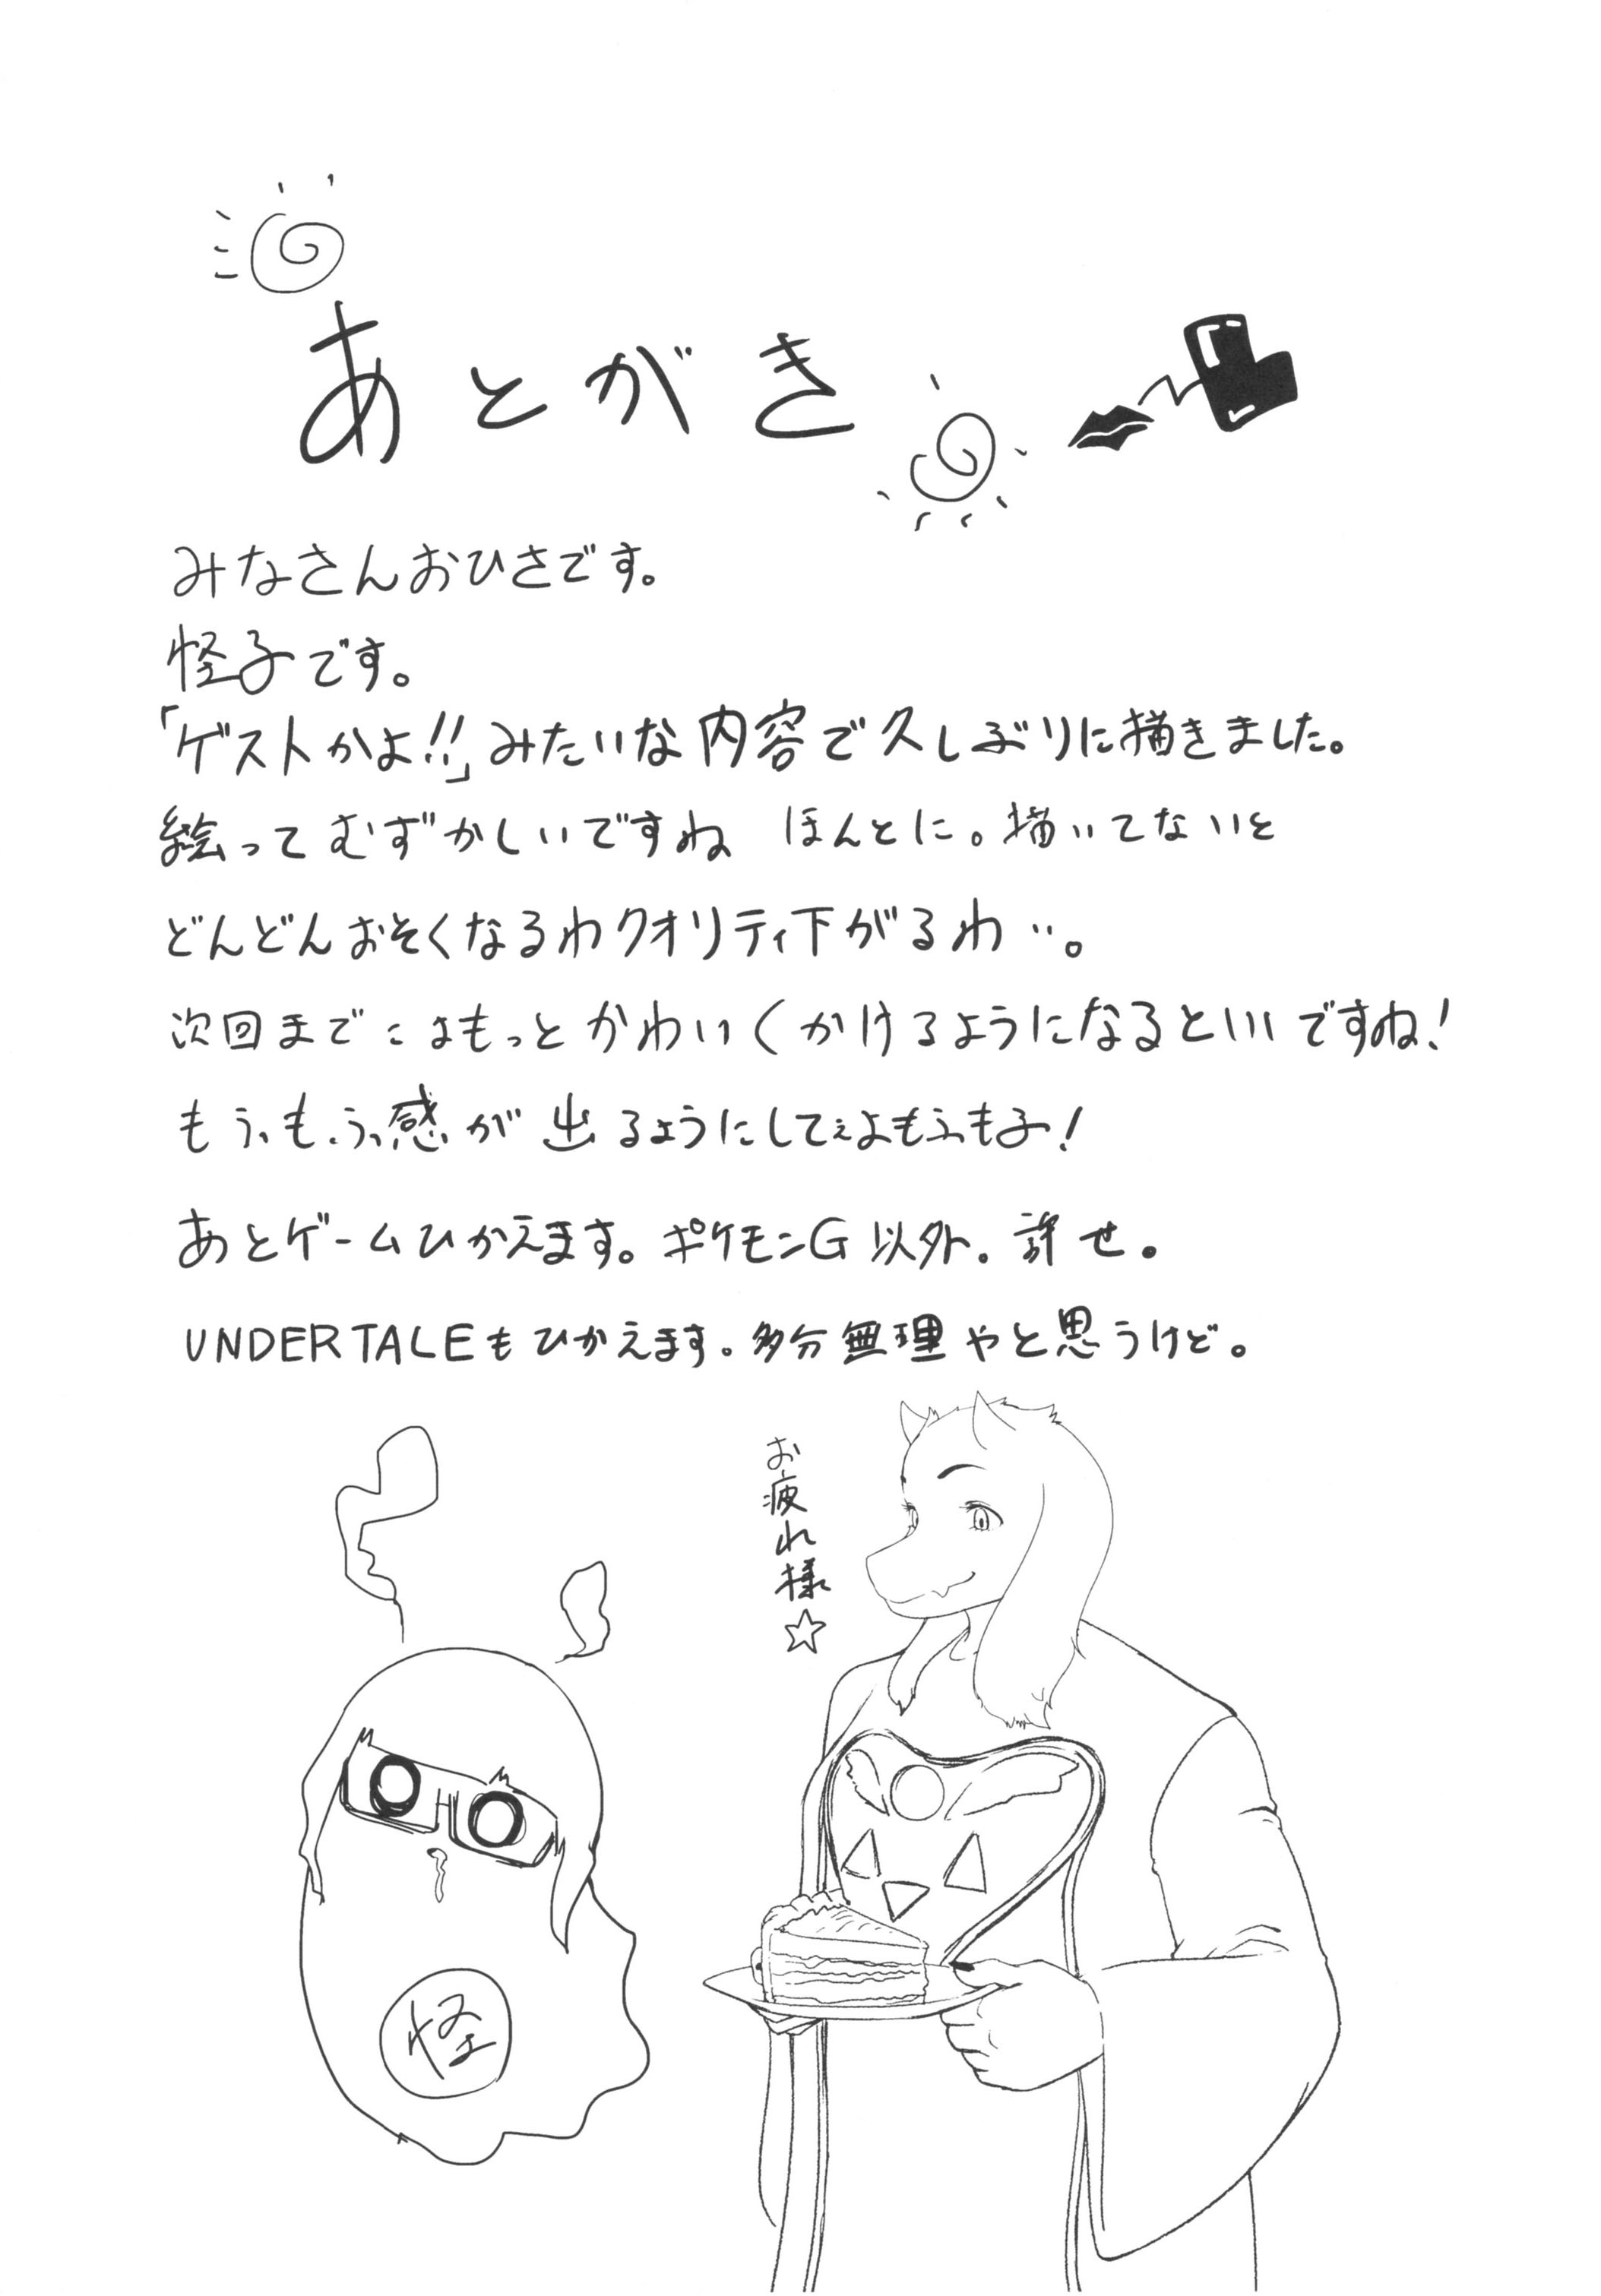 あとがき
みなさんおひさです。
怪子です。
「ゲストかよ!!」みたいな内容で久しぶりに描きました。
絵ってむずかしいですね ほんとに。描いてないと
どんどんおそくなるわクオリティ下がるわ‥。
次回まで にはもっとかわいくかけるようになるといいですね!
もふもふ感が出るようにしてぇよもふもふ!
あとゲームひかえます。ポケモンG以外。許せ。
UNDERTALEもひかえます。多分無理やと思うけど。
お疲れ様☆
怪